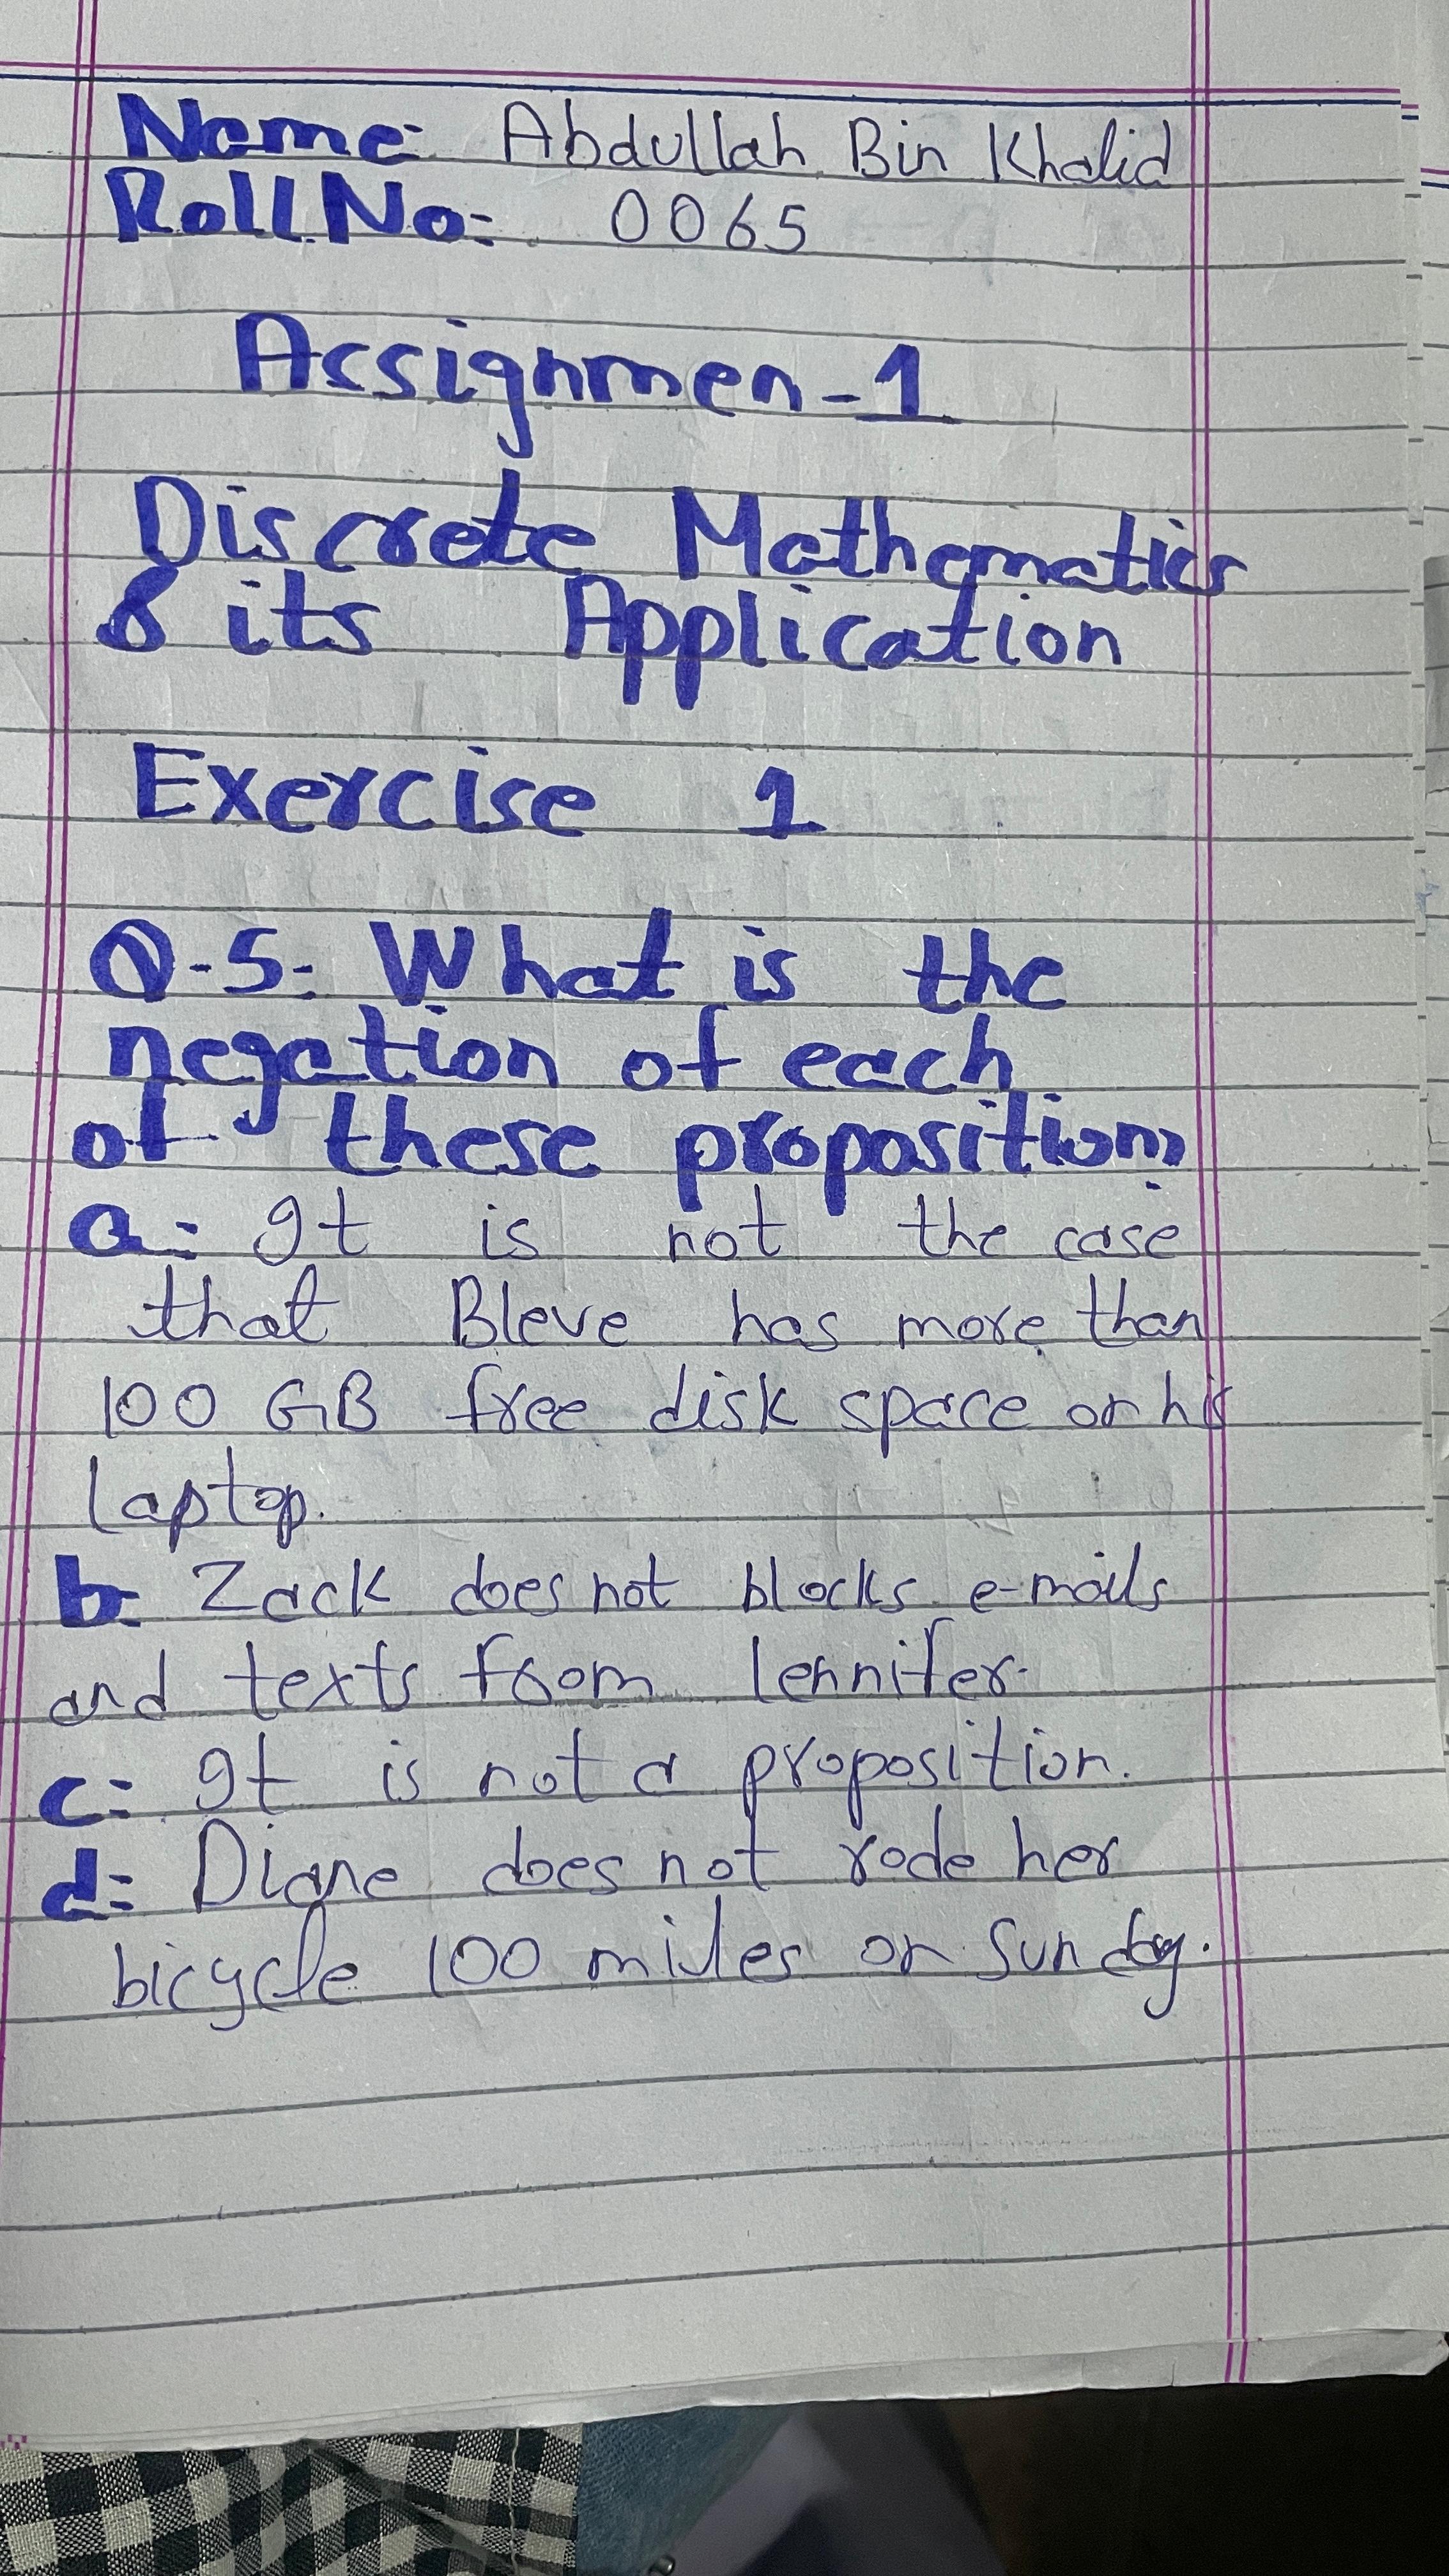 Name: Abdullah Bin Khalid
Roll No:- 0065
Assignmen-1
Discrete Mathematics
& its Application
Exercise 1
Q-5: What is the
negation of each
of these propositions
a:- It is not the case
that Bleve has more than
100 GB free disk space on his
laptop.
b- Zack does not blocks e-mails
and texts from lennifer.
c:- It is not a proposition.
d:- Diane does not rode her
bicycle 100 miles on Sunday.